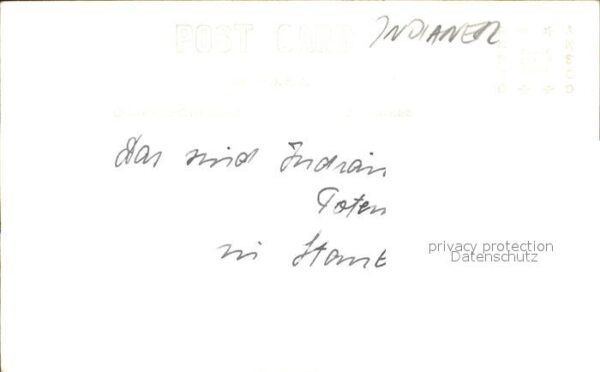 POST CARD INDIANER
ANSCO
Das sind Indian
Toten
in
privacy protection
Datenschutz